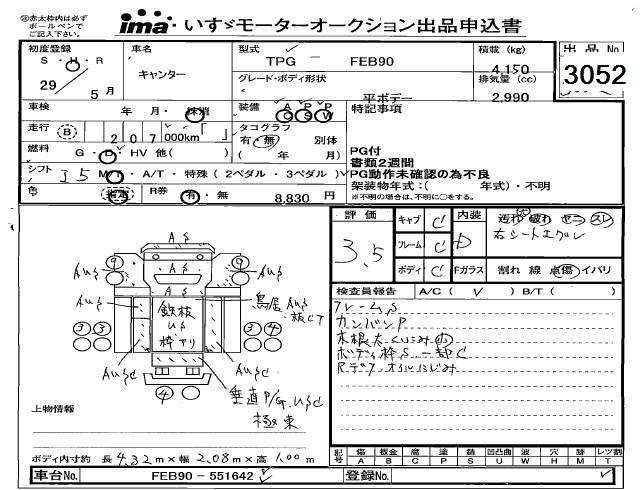 ※赤太枠内は必ず
ボールペンで
ご記入下さい。
ima いすゞモーターオークション出品申込書
初度登録 車名 型式 積載(kg) 出品No
S・H・R キャンター TPG － FEB90 4,150 3052
29年 5月 グレード・ボディ形状 排気量(cc)
平ボデー 2,990
車検 年 月・抹消 装備 A P P C S W 特記事項
走行 B 207,000km「 」 タコグラフ
有・無 別体
燃料 G・D・HV 他( ) ( 年 月) PG付
書類2週間
シフト I5 MT・A/T・特殊(2ペダル・3ペダル) PG動作未確認の為不良
架装物年式:( 年式)・不明
色 R券 有・無 8,830 円 ※不明の場合は、不明に○をする。
評価 キャブ C 内装 汚れ 破れ セコ スレ
3.5 フレーム C D 右シートエグレ
ボディ C Fガラス 割れ 線 点傷 イバリ
検査員報告 A/C( ✓ ) B/T( )
フレームS
カンバンP
木根太くいこみ小
ボディ枠S一部C
Rデフオイルにじみ
AS
AS
9 9
AuS AuS
鳥居AuS
板CT
鉄板
US
枠アリ
3 3 3 4
AuSC AuSC
垂直P/G.USC
極東
4
上物情報
ボディ内寸約 長 4.32m×幅 2.08m×高 1.00m
記号 傷A 板金B 腐C 塗P 錆S 凹凸曲U 波W 穴H 跡M レンズ割T
車台No. FEB90 － 551642 登録No.